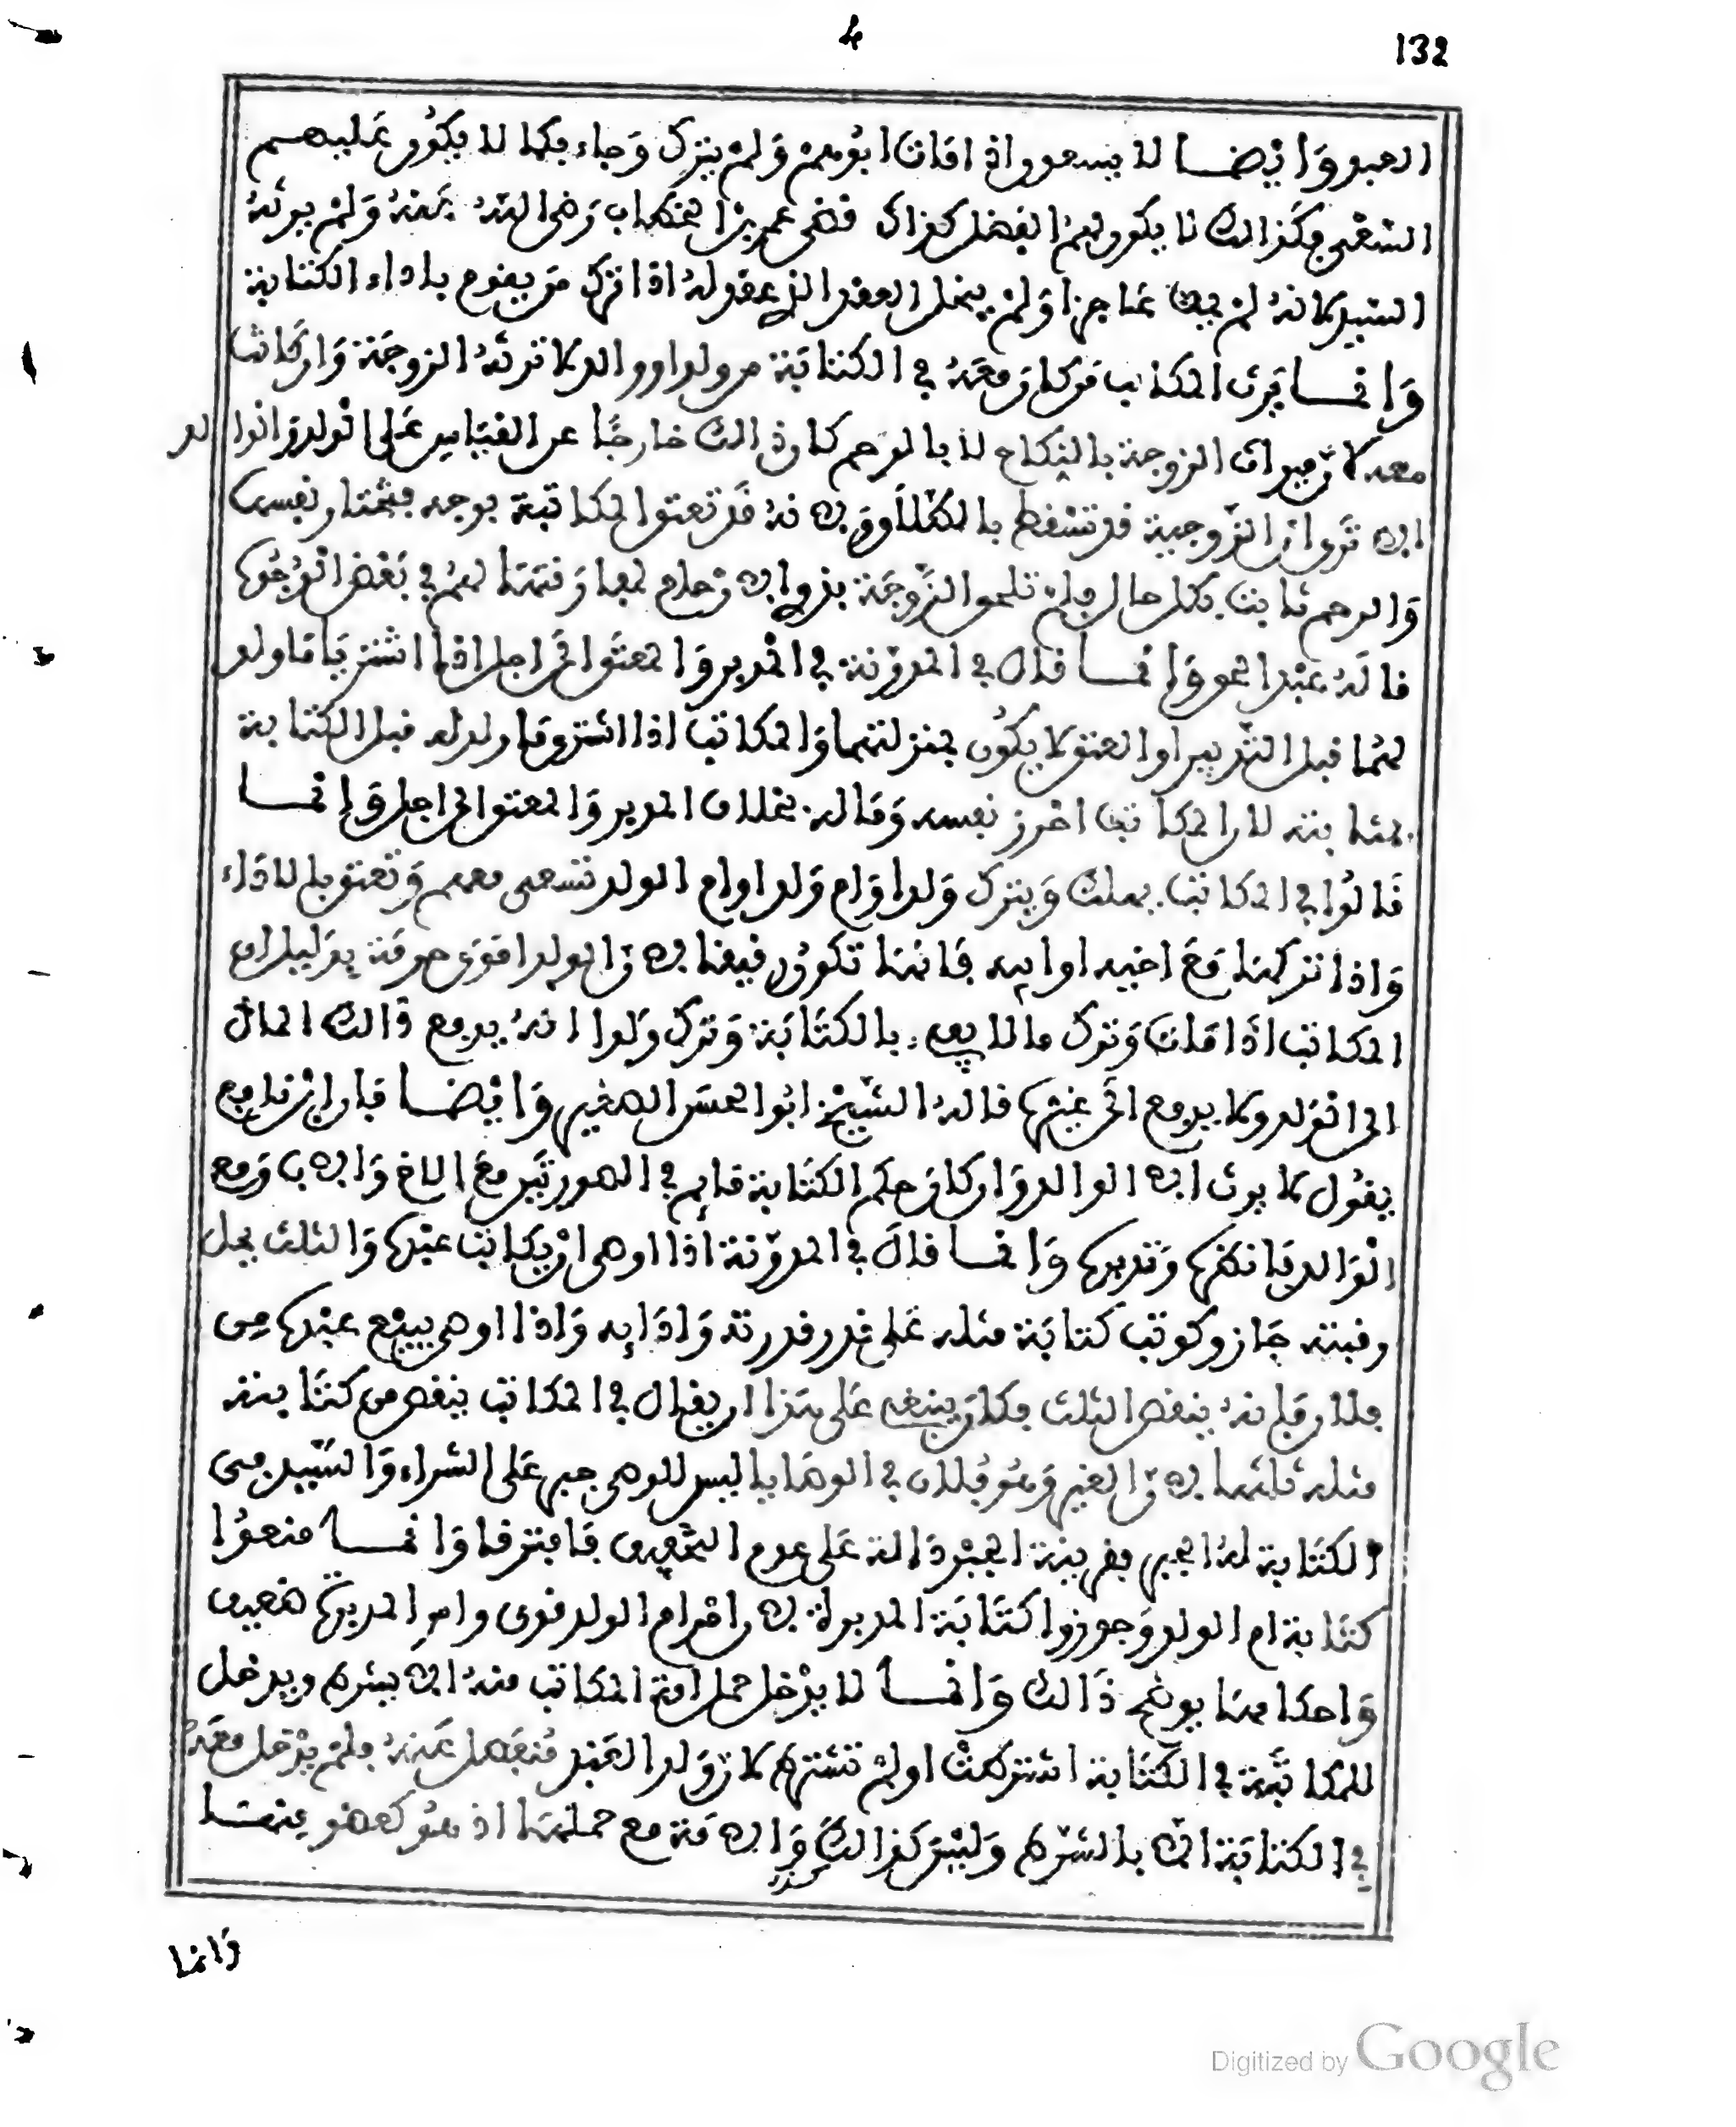 132
العبد وَايْضا لا يسعون اذا مات ابوهم وَلم يترك وَجاء فكما لا يكُون عَليهم
السَّعْي فكذالك لا يكون لهم الفضل كذاك قضى عمر بن الخطاب رَضي اللهُ عَنهُ وَلم يرثهُ
السّيد لانهُ لم يمت عَاجزا وَلم ينحل العقد الذي عقد لهُ اذا ترك من يقوم باداء الكتابة
وَانما يَرث المكاتب من كان معَهُ في الكتابَة من ولد او والد لا ترثهُ الزوجَة وَان كانت
معه لان ميراث الزوجة بالنكاح لا بالرحم كان ذالك خارجًا عن القيَاس عَلى الولد
الا تَرى ان الزّوجية قد تسقط بالطّلاق وَلانهُ قَد تعتق المكاتبة بوجه فتختار نفسها
وَالرحم ثابت بكل حال فلم تلحق الزَّوجَة بذوي الارحام لمفارقتها لهم في بَعْض الوُجُوه
قالَهُ عَبْد الحق وَانما قال في المدوّنة في المدبر وَالمعتَق الَى اجل اذا اشتريَا ما ولد
لهُما قبل التّدبير او العتق لا يكُون بمنزلتهما وَالمكاتب اذا اشترى ما ولد له قبل الكتابة
بمثابته لان المكاتب احْرز نفسه وَماله بخلاف المدبر وَالمعتق الى اجل وَانما
قَالُوا في المكاتب يهلك وَيترك وَلدا وَام وَلد او ام الولد تسعى معهم وَتعتق بالاداء
وَاذا تركها مَعَ اخيه او ابيه فَانها تكون رقيقا لان الولد اقوَى حرمَة بدَليل ان
المكاتب اذا مات وَترك مالا يفي بالكتَابَة وَترك وَلدا انهُ يدفع ذالك المال
الى الوَلد ولا يدفع الَى غيْره قالهُ الشّيخ ابُو الحسَن الصغير وَايْضا فان ابن نافع
يقُول لا يرث الا الوالد وَان كان حكم الكتَابة قايم في الصورتَين مَعَ الاخ وَالاب وَمع
الوَالد فانظره وَتدبره وَانما قال في المدوّنة اذا اوصى ان يكاتب عبْده وَالثلث يحمل
رقبته جَاز وكوتب كتابَة مثله عَلى قدر قدرته وَادَايه وَاذا اوصى ببيْع عبْده من
فلان فانهُ ينقص الثلث فكان ينبغي عَلى هَذا ان يقال في المكاتب ينقص من كتَابته
مثله ثلثها لان الغير وَهُو فلان في الوصَايا ليس للوصي جبره عَلى الشراء وَالسّيد من
الكتَابة لهُ الجبر فقرينة الجبْر دَالة عَلى عدم التخفيف فَافترقا وَانما منعوُا
كتَابة ام الولد وَجوزوا كتَابَة المدبرة لان امْر ام الولد قوي وامر المدبرة ضعيف
وَاحكامها يوضح ذَالك وَانما لا يدْخل حمل امة المكاتب منهُ الا بشرط ويدخل
للمكاتَبة في الكتَابة اشترطت او لم تشترط لان وَلد العَبد مُنفَصل عَنهُ فلم يدْخل معَهُ
في الكتابَة الا بالشّرط وَليْسَ كذالك وَلد الامَة مع حملها اذ هُو كعضو منها
وَانما
Digitized by Google